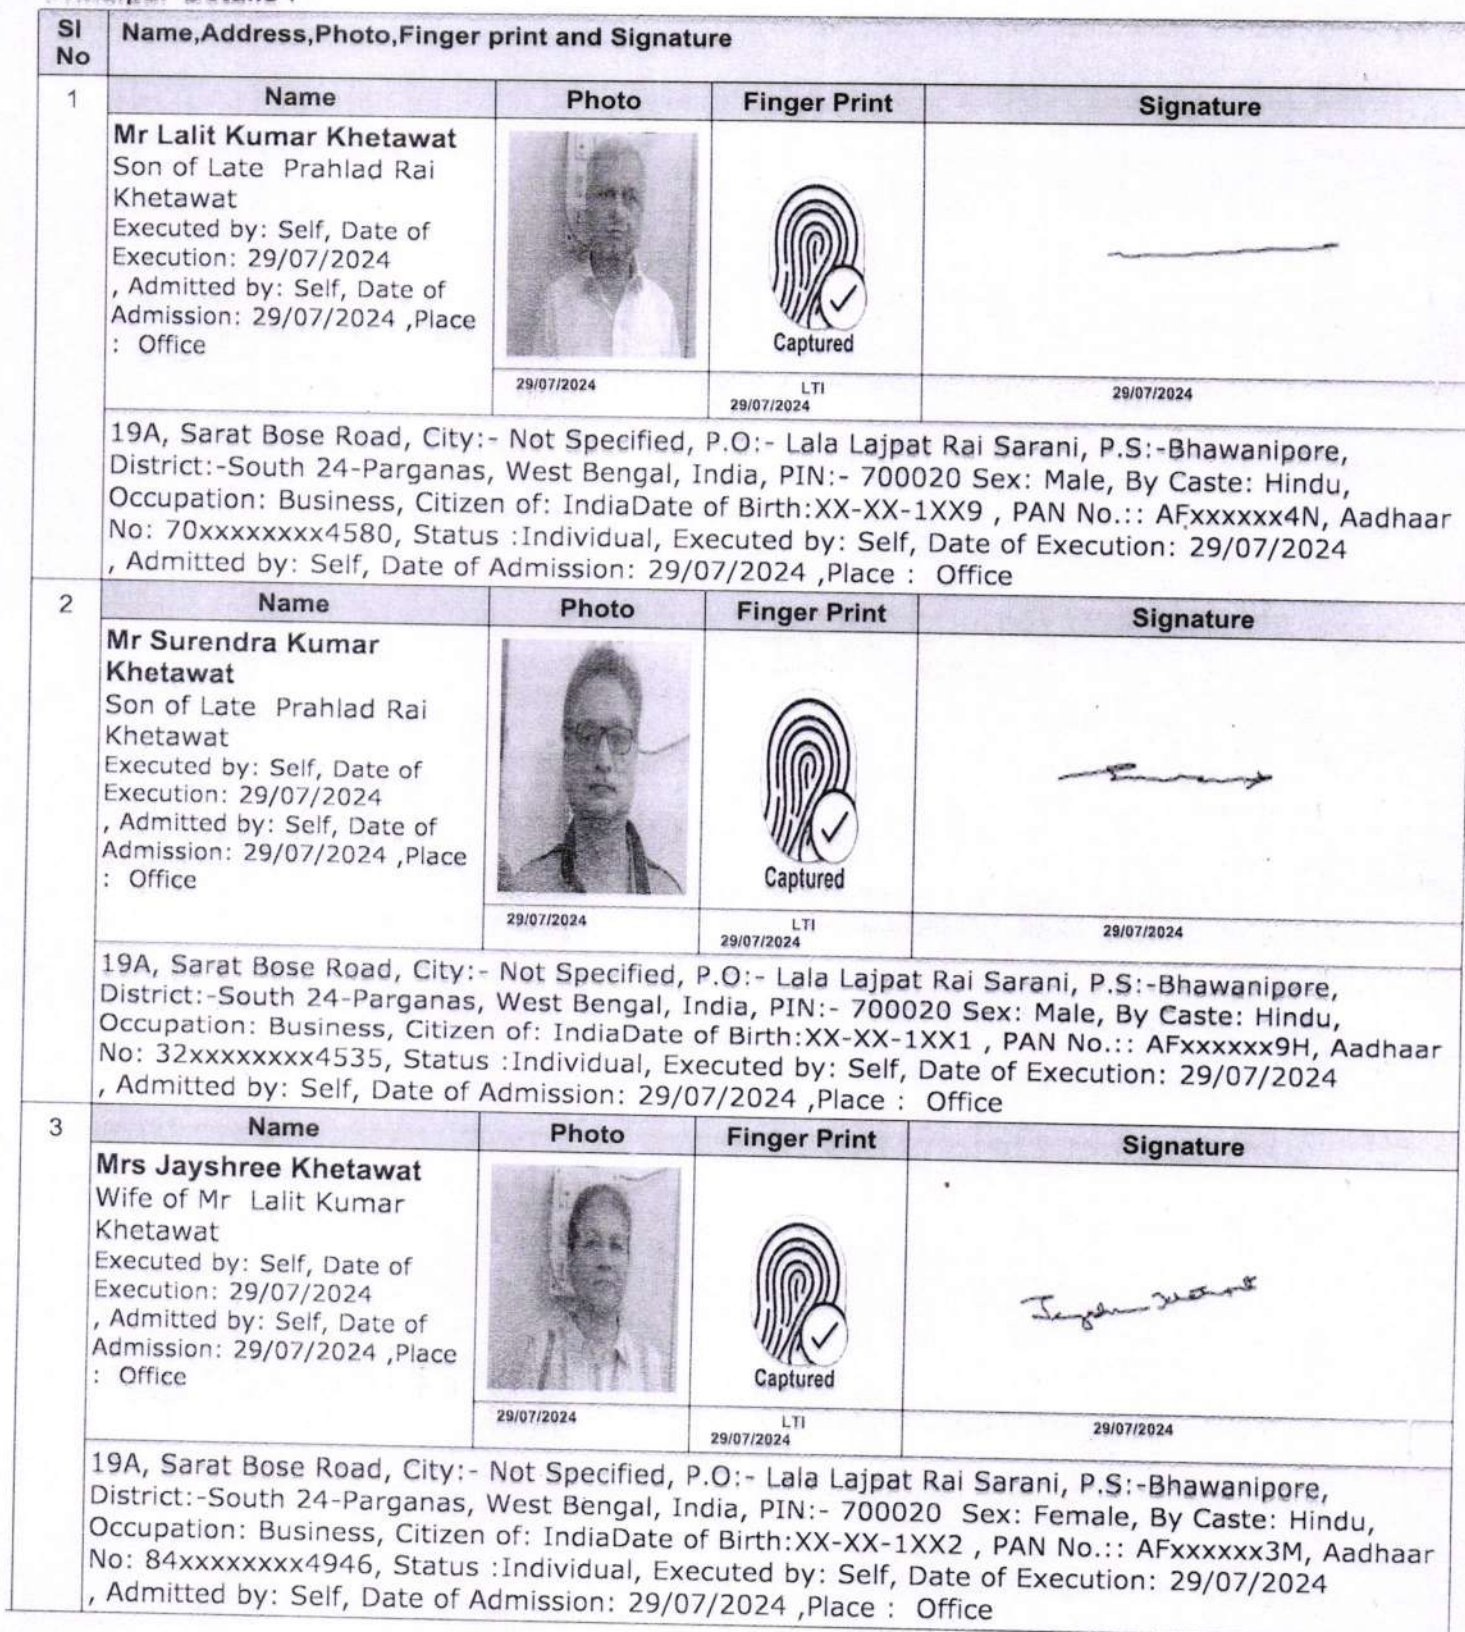 Sl No
Name,Address,Photo,Finger print and Signature
1
Name
Photo
Finger Print
Signature
Mr Lalit Kumar Khetawat
Son of Late Prahlad Rai
Khetawat
Executed by: Self, Date of
Execution: 29/07/2024
, Admitted by: Self, Date of
Admission: 29/07/2024 ,Place
: Office
Captured
29/07/2024
LTI
29/07/2024
29/07/2024
19A, Sarat Bose Road, City:- Not Specified, P.O:- Lala Lajpat Rai Sarani, P.S:-Bhawanipore,
District:-South 24-Parganas, West Bengal, India, PIN:- 700020 Sex: Male, By Caste: Hindu,
Occupation: Business, Citizen of: IndiaDate of Birth:XX-XX-1XX9 , PAN No.:: AFxxxxxx4N, Aadhaar
No: 70xxxxxxxx4580, Status :Individual, Executed by: Self, Date of Execution: 29/07/2024
, Admitted by: Self, Date of Admission: 29/07/2024 ,Place : Office
2
Name
Photo
Finger Print
Signature
Mr Surendra Kumar
Khetawat
Son of Late Prahlad Rai
Khetawat
Executed by: Self, Date of
Execution: 29/07/2024
, Admitted by: Self, Date of
Admission: 29/07/2024 ,Place
: Office
Captured
29/07/2024
LTI
29/07/2024
29/07/2024
19A, Sarat Bose Road, City:- Not Specified, P.O:- Lala Lajpat Rai Sarani, P.S:-Bhawanipore,
District:-South 24-Parganas, West Bengal, India, PIN:- 700020 Sex: Male, By Caste: Hindu,
Occupation: Business, Citizen of: IndiaDate of Birth:XX-XX-1XX1 , PAN No.:: AFxxxxxx9H, Aadhaar
No: 32xxxxxxxx4535, Status :Individual, Executed by: Self, Date of Execution: 29/07/2024
, Admitted by: Self, Date of Admission: 29/07/2024 ,Place : Office
3
Name
Photo
Finger Print
Signature
Mrs Jayshree Khetawat
Wife of Mr Lalit Kumar
Khetawat
Executed by: Self, Date of
Execution: 29/07/2024
, Admitted by: Self, Date of
Admission: 29/07/2024 ,Place
: Office
Captured
29/07/2024
LTI
29/07/2024
29/07/2024
19A, Sarat Bose Road, City:- Not Specified, P.O:- Lala Lajpat Rai Sarani, P.S:-Bhawanipore,
District:-South 24-Parganas, West Bengal, India, PIN:- 700020 Sex: Female, By Caste: Hindu,
Occupation: Business, Citizen of: IndiaDate of Birth:XX-XX-1XX2 , PAN No.:: AFxxxxxx3M, Aadhaar
No: 84xxxxxxxx4946, Status :Individual, Executed by: Self, Date of Execution: 29/07/2024
, Admitted by: Self, Date of Admission: 29/07/2024 ,Place : Office